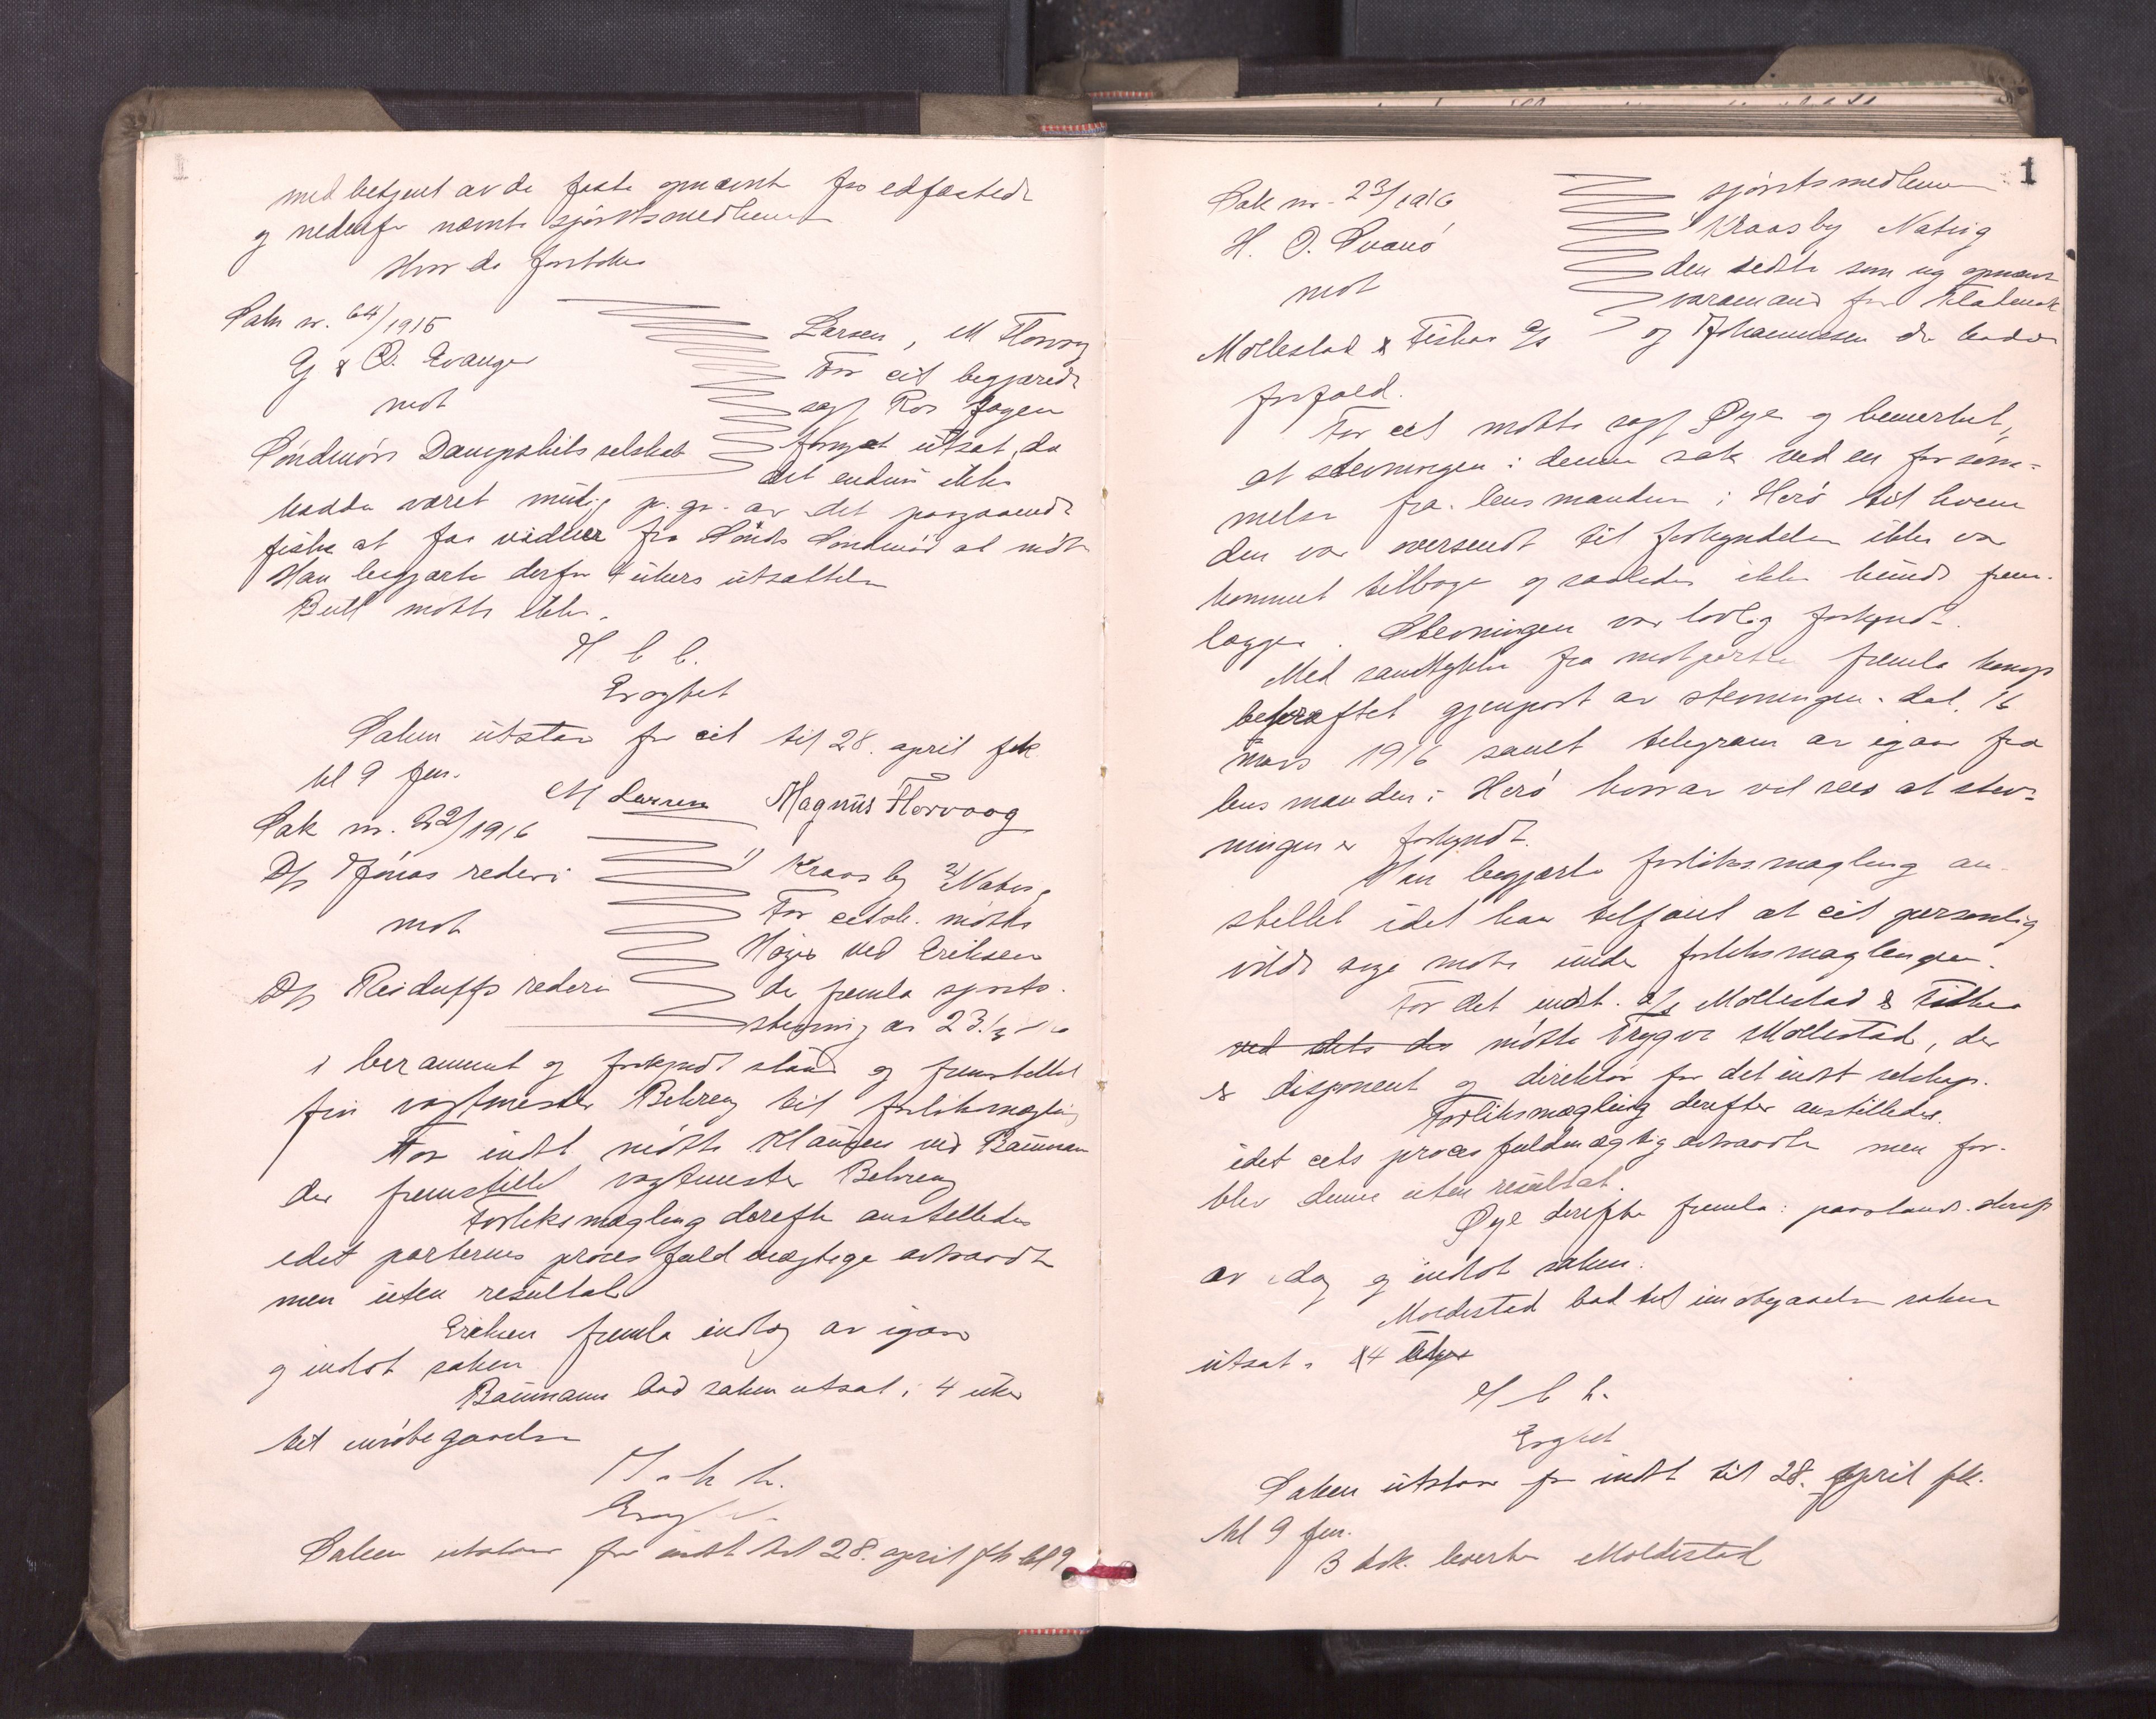 med betjent av de faste opnævnte fra edfæstede
og nedenfor nævnte sjøretsmedlemmer
Hvor da foretokes
Sak nr. 64/1915
G & O. Evanger
mot
Söndmörs Dampskibsselskab
Larsen, M Florvaag
For cit begjærede
sagf Ros Jagen
fornyet utsat, da
det endnu ikke
hadde været mulig p. gr. av det paagaaende
fiske at faa vidner fra Söndmör at möte
Han begjærte derfor 4 ukers utsættelse
Bull mötte ikke.
Evagtet
Saken utstaar for cit til 28. april fk
kl 9 fm.
M Larsen Magnus Florvaag
Sak nr. 22/1916
D/s Jonas rederi
mot
D/s Reidulfs rederi
1) Kraasby 2) Natvig
For citsk. mötte
Höjer ved Eriksen
der fremla sjørets-
stevning av 23.
i berammet og forkyndt stand og fremstillet
vagtmester Behrens til forliksmægling
For indst mötte Klausen ved Baumann
der fremstillet vagtmester Behrens
Forliksmægling derefter anstilledes
idet parternes procesfuldmægtige avtraadte
men uten resultat
Eriksen fremla indlæg av igaar
og indlot saken
Baumann bad saken utsat i 4 uker
til imötegaaelse
Saken utstaar for indst til 28. april fk kl 9
1
Sak nr. 23/1916
H. O. Svanö
mot
Mollestad & Fiskaa A/s
sjøretsmedlemmer
Kraasby Natvig
den sidste som ny opnævnt
varamand for
og Johannessen der hadde
forfald.
For cit mötte sagf Øye og bemerket,
at stevningen i denne sak ved en forsöm-
melse fra lensmanden i Herö til hvem
den var oversendt til forkyndelse ikke var
kommet tilbage og saaledes ikke kunde frem-
lægges. Stevningen var lovlig forkyndt.
Med samtykke fra motparten fremla komp
bekræftet gjenpart av stevningen dat. 16
mars 1916 samt telegram av igaar fra
lensmanden i Herö hvorav vil sees at stev-
ningen er forkyndt.
Han begjærte forliksmægling an-
stillet idet han tilföiet at cit personlig
vilde möte under forliksmæglingen.
For det indst. A/s Mollestad & Fiskaa
ved dets der mötte Trygve Mollestad, der
er disponent og direktör for det indst selskap.
Forliksmægling derefter anstilledes.
idet cits procesfuldmægtig avtraadte men for-
blev denne uten resultat.
Øye derefter fremla paastands skrift
av idag og indlot saken.
Moldestad bad til imötegaaelse saken
utsat i 4 uker
Evagtet
Saken utstaar for indst til 28. april fk.
kl 9 fm.
3 dok. leverte Moldestad